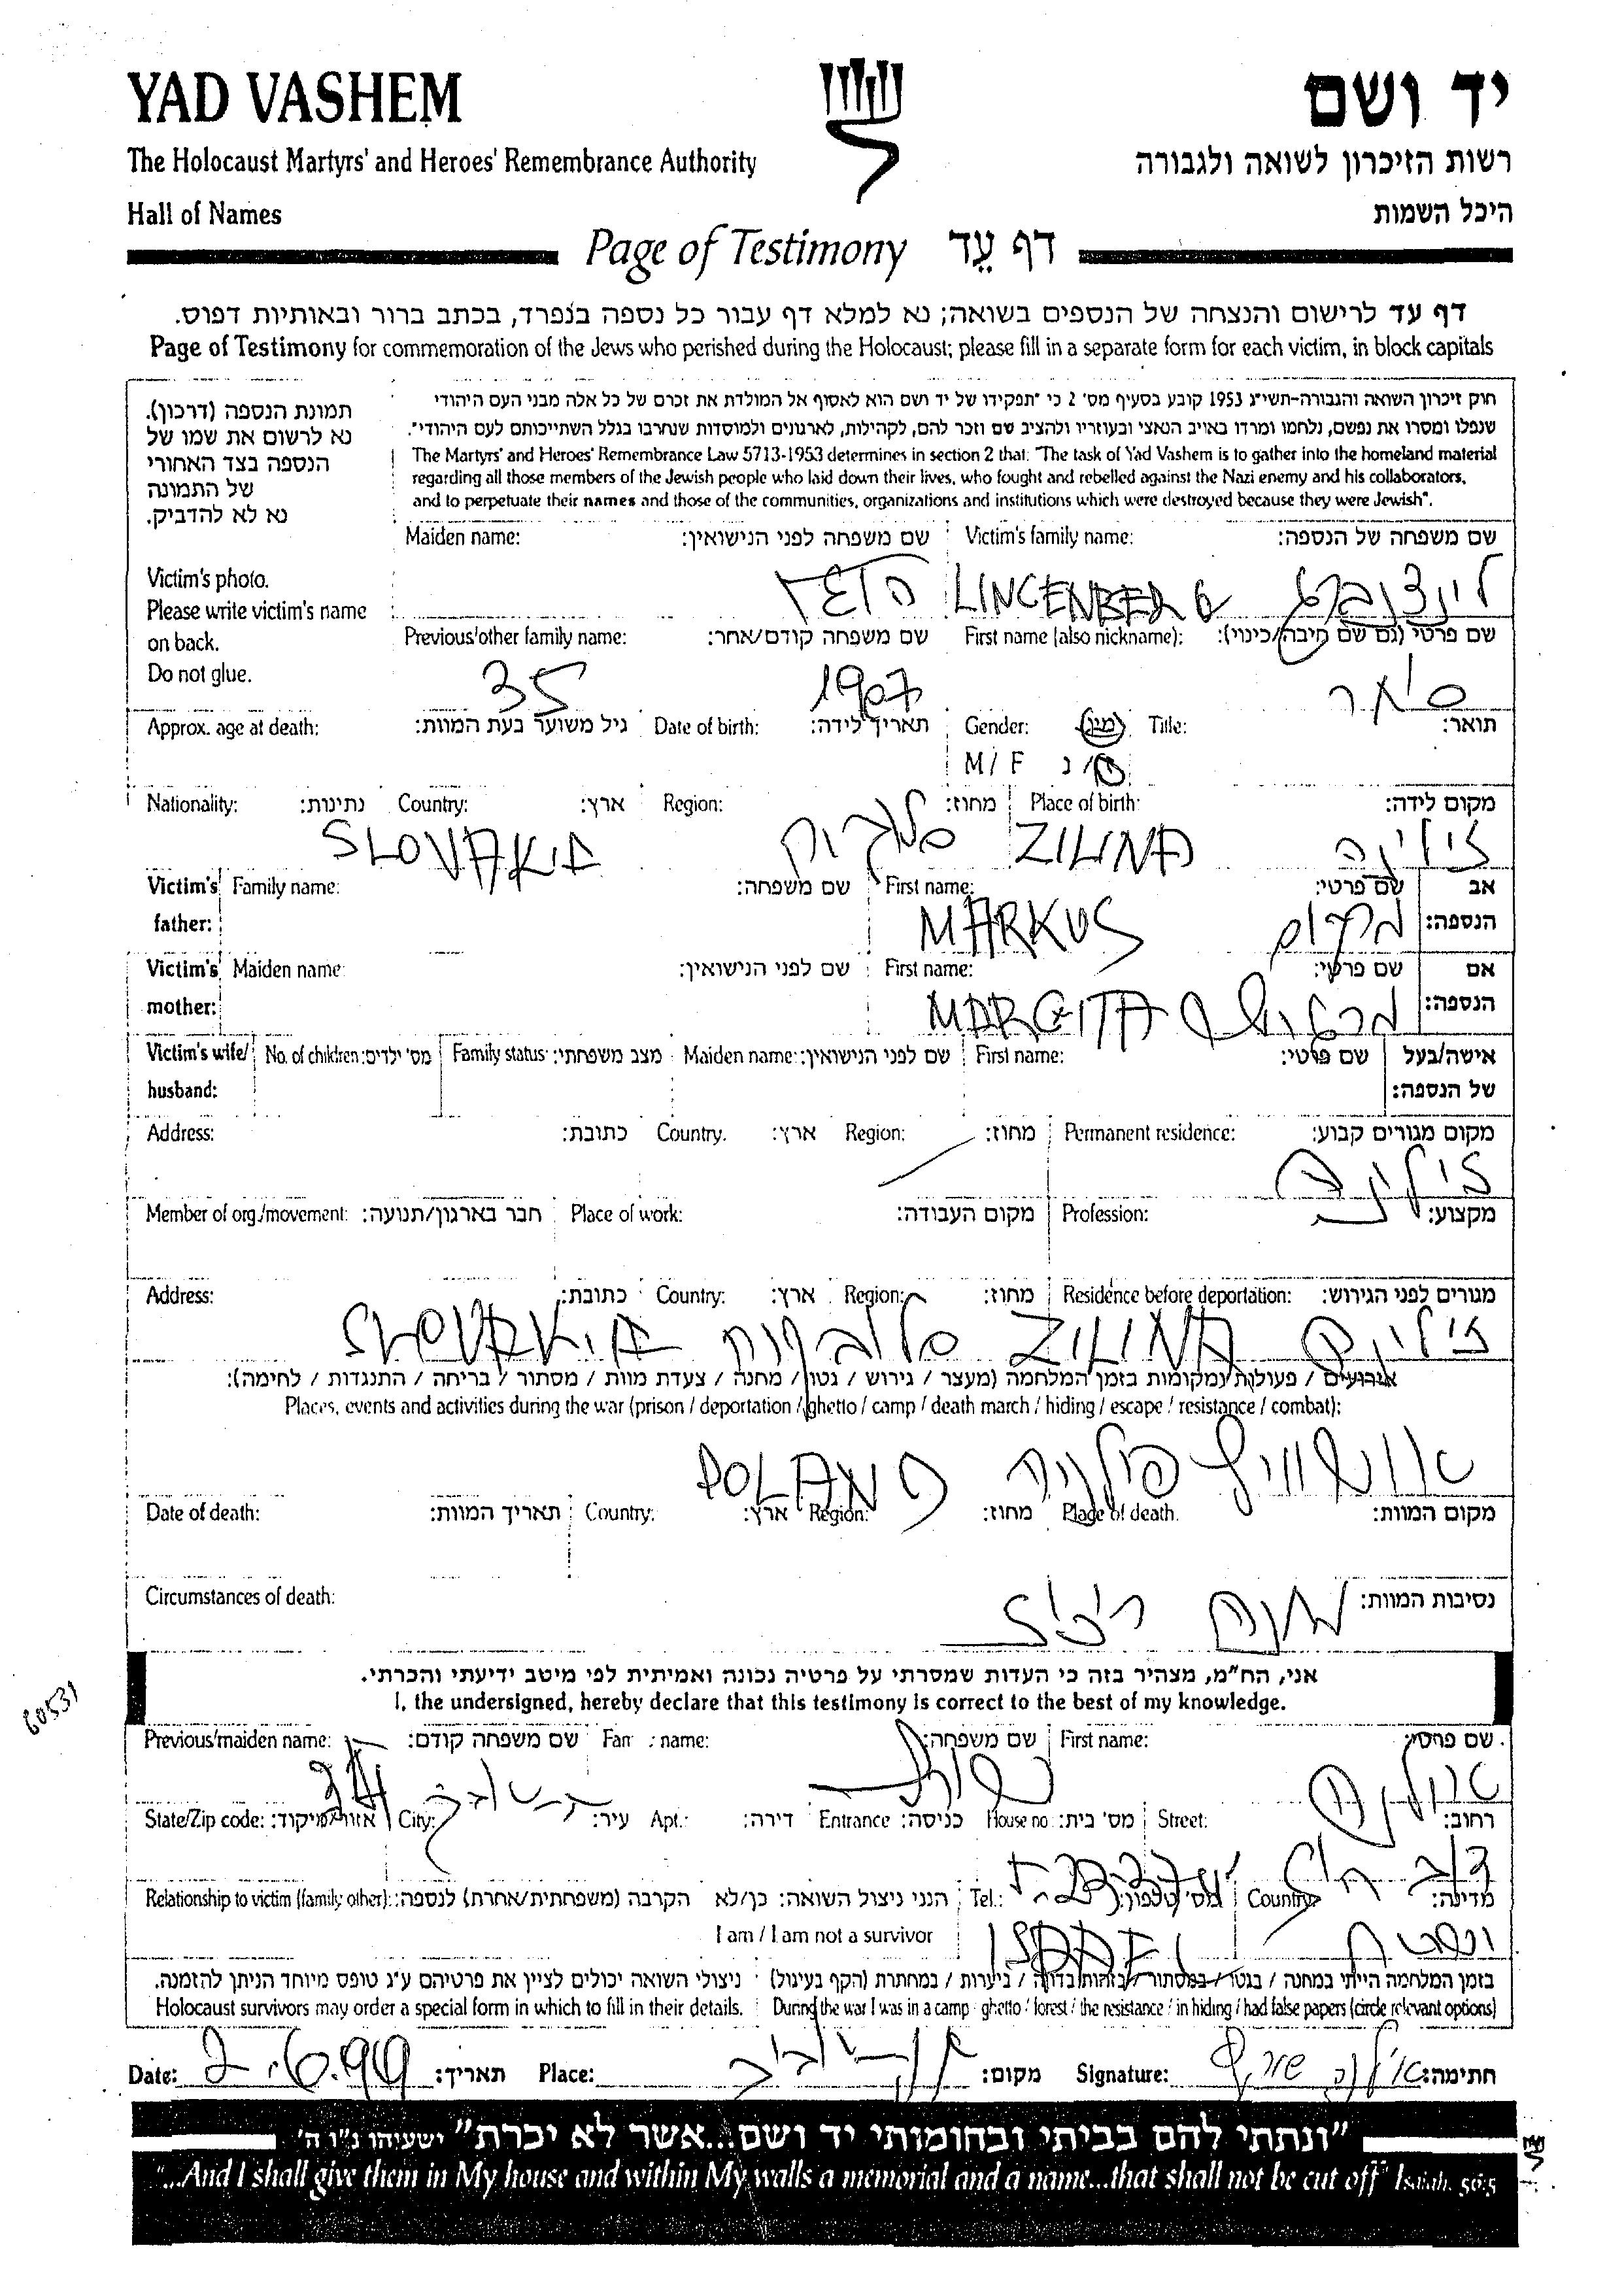 YAD VASHEM יד ושם
The Holocaust Martyrs' and Heroes' Remembrance Authority רשות הזיכרון לשואה ולגבורה
Hall of Names היכל השמות
Page of Testimony דף עֵד
דף עד לרישום והנצחה של הנספים בשואה; נא למלא דף עבור כל נספה בנפרד, בכתב ברור ובאותיות דפוס.
Page of Testimony for commemoration of the Jews who perished during the Holocaust; please fill in a separate form for each victim, in block capitals
תמונת הנספה (דרכון).
נא לרשום את שמו של
הנספה בצד האחורי
של התמונה
נא לא להדביק.
חוק זיכרון השואה והגבורה-תשי"ג 1953 קובע בסעיף מס' 2 כי "תפקידו של יד ושם הוא לאסוף אל המולדת את זכרם של כל אלה מבני העם היהודי
שנפלו ומסרו את נפשם, נלחמו ומרדו באויב הנאצי ובעוזריו ולהציב שם וזכר להם, לקהילות, לארגונים ולמוסדות שנחרבו בגלל השתייכותם לעם היהודי".
The Martyrs' and Heroes' Remembrance Law 5713-1953 determines in section 2 that: "The task of Yad Vashem is to gather into the homeland material
regarding all those members of the Jewish people who laid down their lives, who fought and rebelled against the Nazi enemy and his collaborators,
and to perpetuate their names and those of the communities, organizations and institutions which were destroyed because they were Jewish".
Victim's photo.
Please write victim's name
on back.
Do not glue.
Maiden name: שם משפחה לפני הנישואין: Victim's family name: שם משפחה של הנספה:
LINCENBERG לינצנברג
Previous/other family name: שם משפחה קודם/אחר: First name (also nickname): שם פרטי (גם שם חיבה/כינוי):
35 1907
Approx. age at death: גיל משוער בעת המוות: Date of birth: תאריך לידה: Gender: מין: Title: תואר:
M / F ז / נ
Nationality: נתינות: Country: ארץ: Region: מחוז: Place of birth: מקום לידה:
SLOVAKIA סלובקיה ZILINA זילינה
Victim's father: Family name: שם משפחה: First name: שם פרטי: אב הנספה:
MARKUS מרקוס
Victim's mother: Maiden name: שם לפני הנישואין: First name: שם פרטי: אם הנספה:
MARGITA מרגיטה
Victim's wife/ husband: No. of children: מס' ילדים: Family status: מצב משפחתי: Maiden name: שם לפני הנישואין: First name: שם פרטי: אישה/בעל של הנספה:
Address: כתובת: Country: ארץ: Region: מחוז: Permanent residence: מקום מגורים קבוע:
זילינה
Member of org./movement: חבר בארגון/תנועה: Place of work: מקום העבודה: Profession: מקצוע:
Address: כתובת: Country: ארץ: Region: מחוז: Residence before deportation: מגורים לפני הגירוש:
SLOVAKIA סלובקיה ZILINA זילינה
אירועים / פעולות ומקומות בזמן המלחמה (מעצר / גירוש / גטו / מחנה / צעדת מוות / מסתור / בריחה / התנגדות / לחימה):
Places, events and activities during the war (prison / deportation / ghetto / camp / death march / hiding / escape / resistance / combat):
POLAND פולניה אושוויץ
Date of death: תאריך המוות: Country: ארץ: Region: מחוז: Place of death: מקום המוות:
Circumstances of death: נסיבות המוות:
אני, הח"מ, מצהיר בזה כי העדות שמסרתי על פרטיה נכונה ואמיתית לפי מיטב ידיעתי והכרתי.
I, the undersigned, hereby declare that this testimony is correct to the best of my knowledge.
60531
Previous/maiden name: שם משפחה קודם: name: שם משפחה: First name: שם פרטי:
State/Zip code: אזור/מיקוד: City: עיר: Apt.: דירה: Entrance כניסה: House no מס' בית: Street: רחוב:
Relationship to victim (family/other): הקרבה (משפחתית/אחרת) לנספה: הנני ניצול השואה: כן/לא Tel.: מס' טלפון: Country: מדינה:
I am / I am not a survivor
ISRAEL
ניצולי השואה יכולים לציין את פרטיהם ע"ג טופס מיוחד הניתן להזמנה. בזמן המלחמה הייתי במחנה / בגטו / במסתור / בזהות בדויה / ביערות / במחתרת (הקף בעיגול)
Holocaust survivors may order a special form in which to fill in their details. During the war I was in a camp / ghetto / forest / the resistance / in hiding / had false papers (circle relevant options)
Date: 2.6.99 תאריך: Place: תל-אביב מקום: Signature: חתימה:
"ונתתי להם בביתי ובחומותי יד ושם...אשר לא יכרת" ישעיהו נ"ו ה'
"...And I shall give them in My house and within My walls a memorial and a name...that shall not be cut off" Isaiah, 56:5